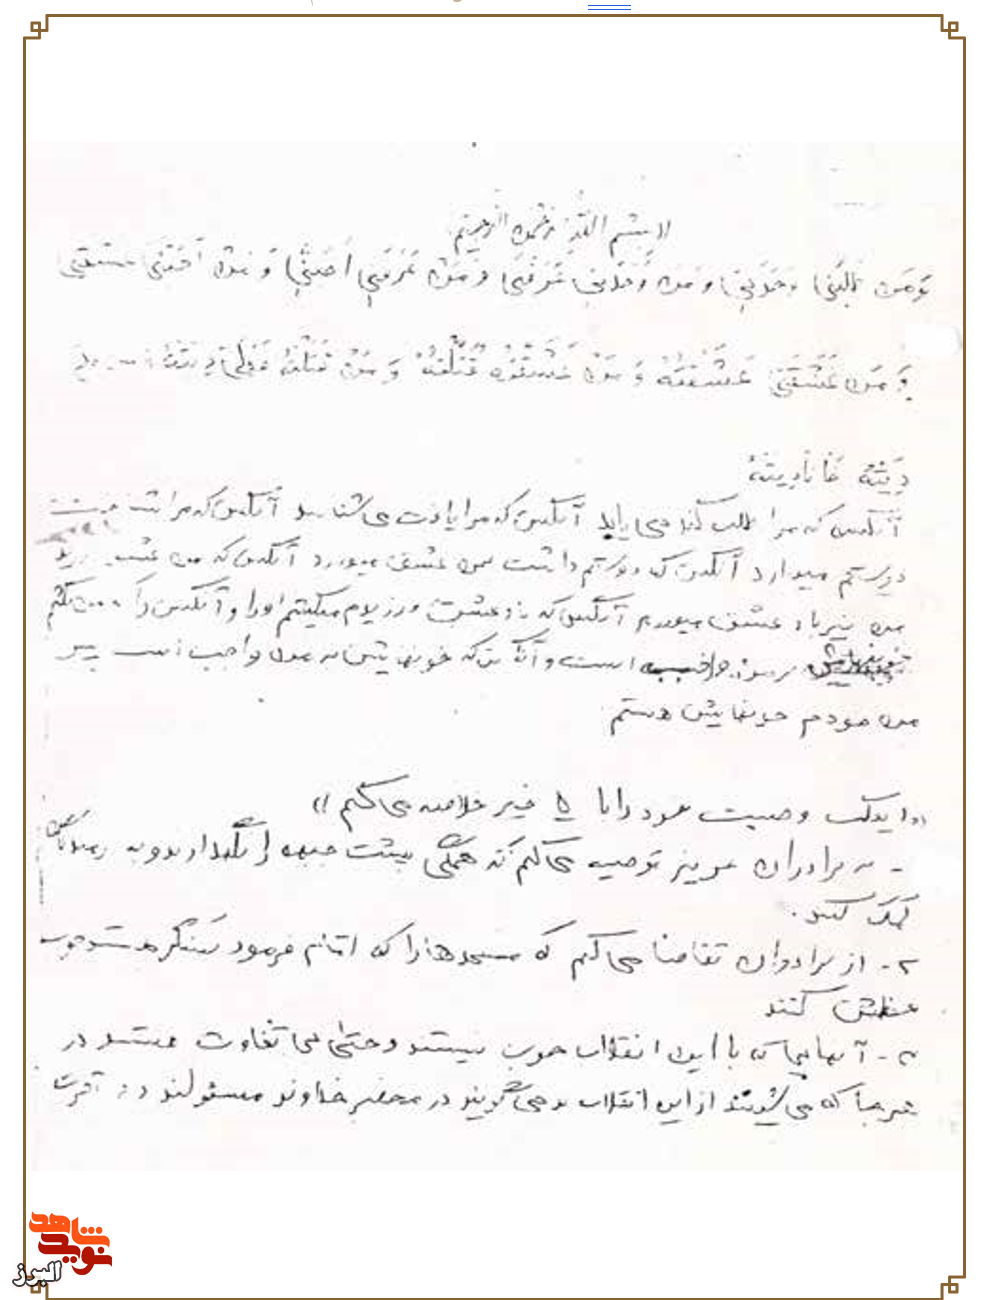 بسم الله الرحمن الرحیم
وَ مَن طَلَبَنی وَجَدَنی وَ مَن وَجَدَنی عَرَفَنی وَ مَن عَرَفَنی اَحَبَّنی وَ مَن اَحَبَّنی عشقنی
وَ مَن عَشَقَنی عَشَقتَهُ وَ مَن عَشَقتَهُ قَتَلتَهُ وَ مَن قَتَلتَهُ فَعَلَیَّ دِیَتَهُ
دِیَتَهُ فَانَا دِیَتَهُ
آنکس که مرا طلب کند می یابد آنکس که مرا یافت می شناسد آنکس که مرا شناخت
دوستم میدارد آنکس که دوستم داشت بمن عشق میورزد آنکس که بمن عشق ورزید
من نیز با او عشق میورزم آنکس که با او عشق ورزیدم میکشم او را و آنکس را که من بکشم
خونبهایش بر من واجب است و آنکس که خونبهایش به من واجب است پس
من خودم خونبهایش هستم
«اینک وصیت خود را با خیر خلاصه می کنم»
- به برادران عزیز توصیه می کنم که همگی پشت جبهه را نگهدارند و به رزمندگان
کمک کنند.
۲- از برادران تقاضا می کنم که مسجدها را که امام فرمود سنگر هستند خوب
حفظش کنند
۳- آنهایی که با این انقلاب خوب نیستند و حتی بی تفاوت هستند در
هر جا که می شینند از این انقلاب بد می گویند در محضر خداوند مسئولند در آخرت
نوید شاهد
البرز